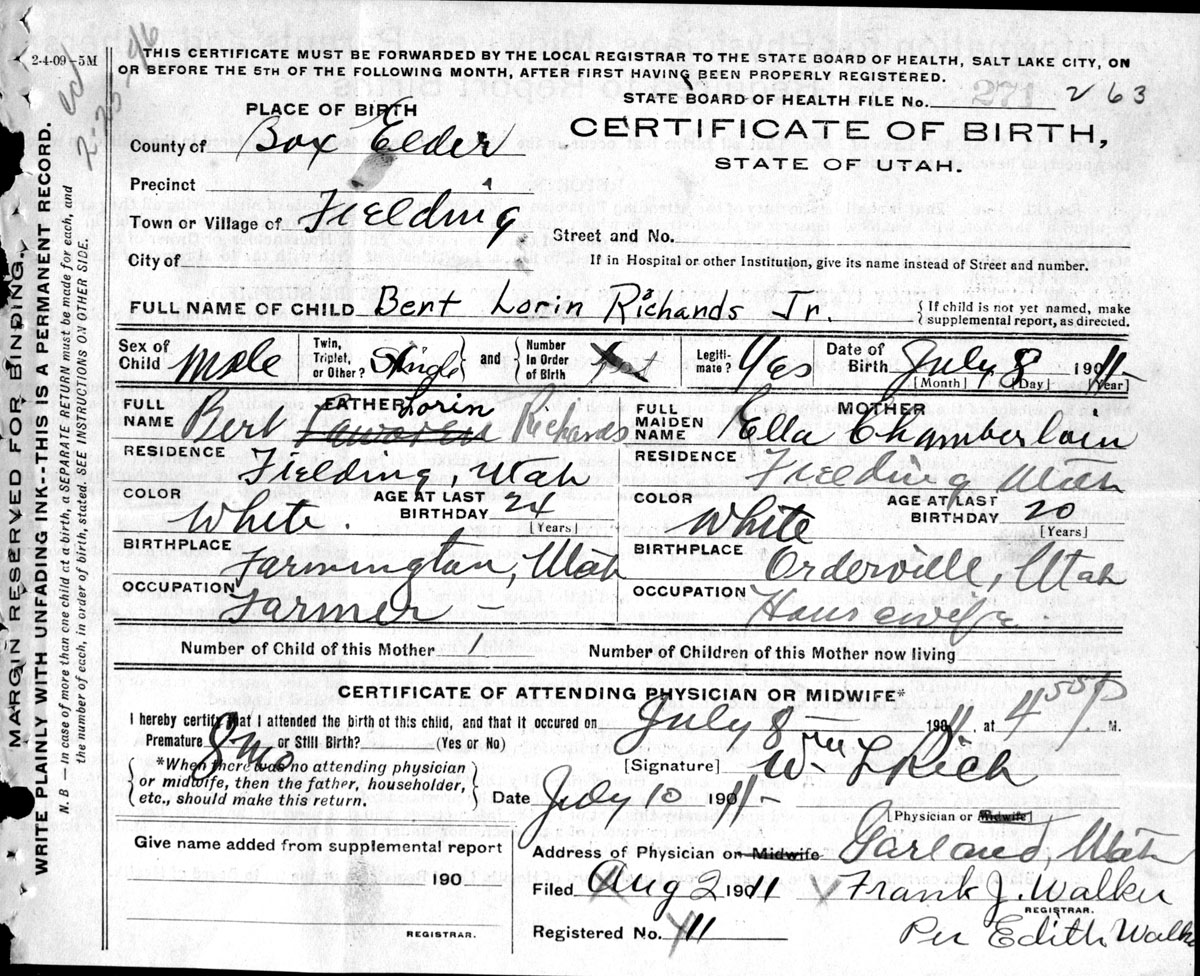 2-4-09-5M
THIS CERTIFICATE MUST BE FORWARDED BY THE LOCAL REGISTRAR TO THE STATE BOARD OF HEALTH, SALT LAKE CITY, ON
OR BEFORE THE 5TH OF THE FOLLOWING MONTH, AFTER FIRST HAVING BEEN PROPERLY REGISTERED.
STATE BOARD OF HEALTH FILE No. 271 263
PLACE OF BIRTH
CERTIFICATE OF BIRTH,
STATE OF UTAH.
County of Box Elder
Precinct
Town or Village of Fielding
Street and No.
City of
If in Hospital or other Institution, give its name instead of Street and number.
FULL NAME OF CHILD Bert Lorin Richards Jr. {If child is not yet named, make
supplemental report, as directed.
Sex of Child Male Twin, Triplet, or Other? Single and Number In Order of Birth Legiti-mate? Yes Date of Birth July 8 1911
[Month] [Day] [Year]
FULL NAME FATHER Bert Lorin Richards
FULL MAIDEN NAME MOTHER Ella Chamberlain
RESIDENCE Fielding, Utah
RESIDENCE Fielding Utah
COLOR White. AGE AT LAST BIRTHDAY 24 [Years]
COLOR White AGE AT LAST BIRTHDAY 20 [Years]
BIRTHPLACE Farmington, Utah
BIRTHPLACE Orderville, Utah
OCCUPATION Farmer -
OCCUPATION Housewife
Number of Child of this Mother 1 Number of Children of this Mother now living
CERTIFICATE OF ATTENDING PHYSICIAN OR MIDWIFE*
I hereby certify that I attended the birth of this child, and that it occured on July 8 - 1911, at 4 55 P M.
Premature 8 mo or Still Birth? (Yes or No)
*When there was no attending physician
or midwife, then the father, householder,
etc., should make this return.
[Signature] Wm L Rich
Date July 10 1911-
[Physician or Midwife]
Give name added from supplemental report
190
REGISTRAR.
Address of Physician or Midwife Garland, Utah
Filed Aug 2 1911 Frank J. Walker
REGISTRAR.
Registered No. 411 Per Edith Walk
MARGIN RESERVED FOR BINDING.
WRITE PLAINLY WITH UNFADING INK--THIS IS A PERMANENT RECORD.
N. B — In case of more than one child at a birth, a SEPARATE RETURN must be made for each, and
the number of each, in order of birth, stated. SEE INSTRUCTIONS ON OTHER SIDE.